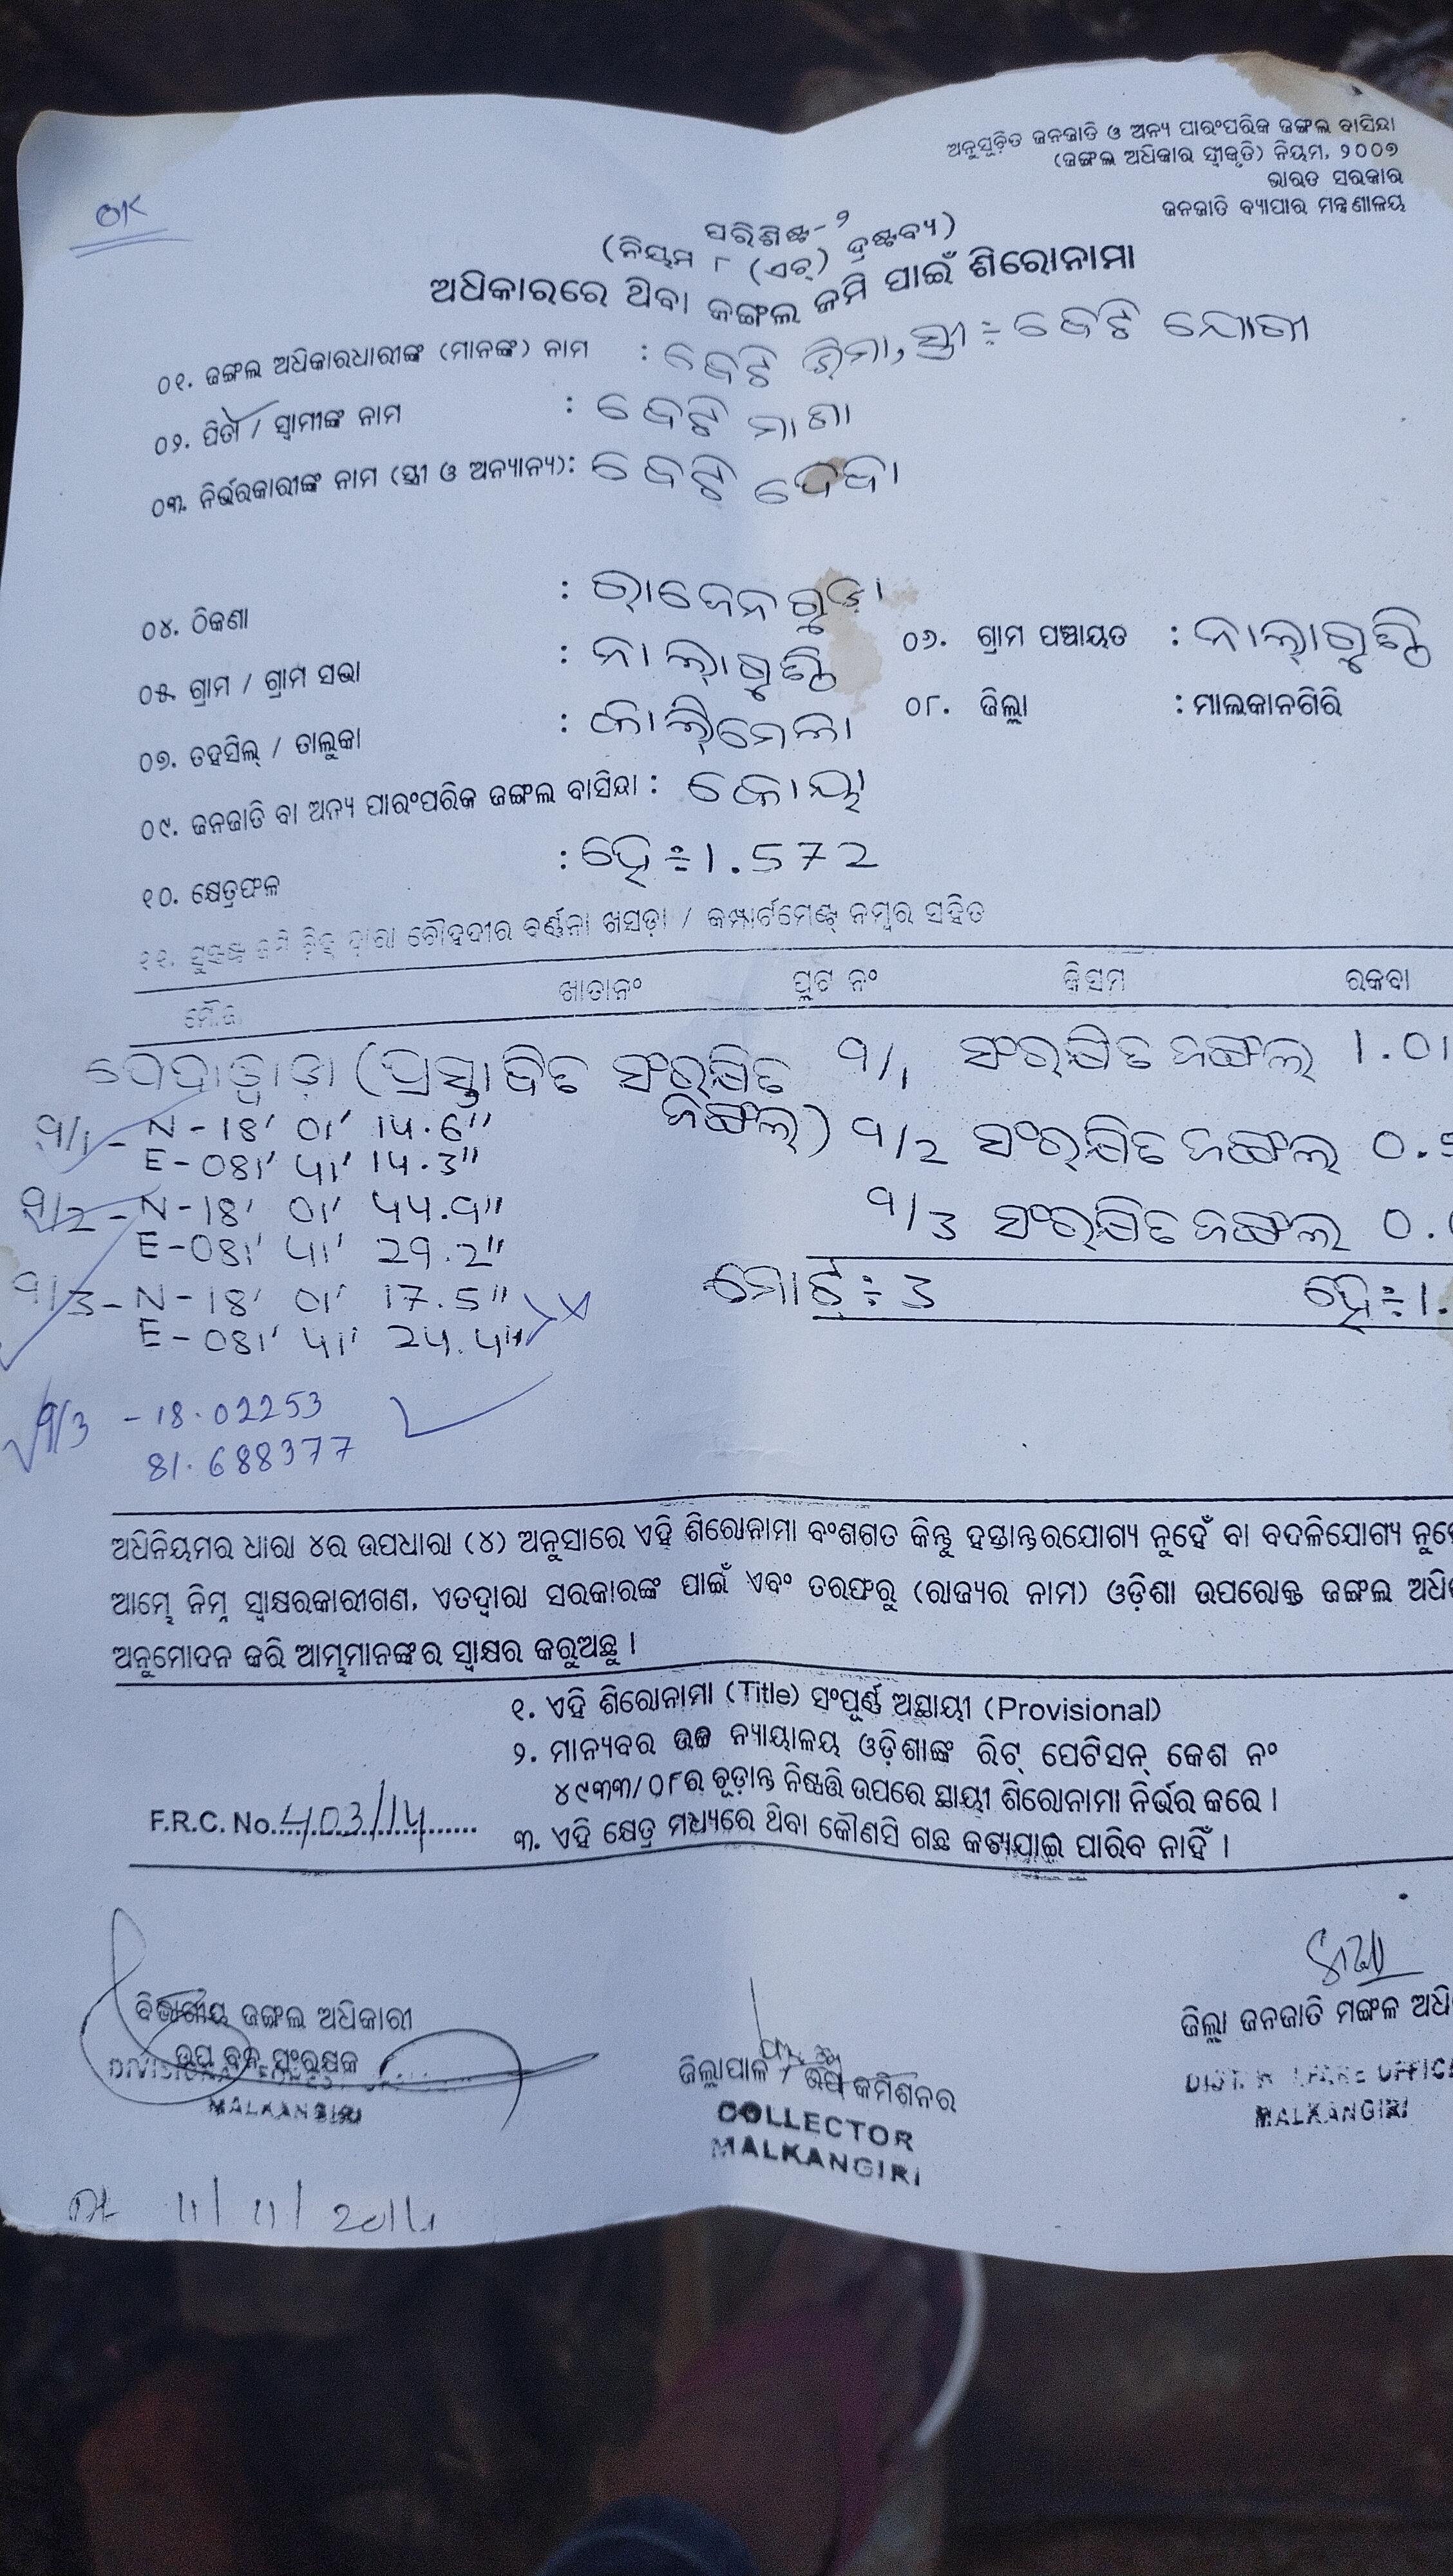 ଅନୁସୂଚିତ ଜନଜାତି ଓ ଅନ୍ୟ ପାରଂପରିକ ଜଙ୍ଗଲ ବାସିନ୍ଦା
(ଜଙ୍ଗଲ ଅଧିକାର ସ୍ୱୀକୃତି) ନିୟମ, ୨୦୦୭
ଭାରତ ସରକାର
ଜନଜାତି ବ୍ୟାପାର ମନ୍ତ୍ରଣାଳୟ
OK
ପରିଶିଷ୍ଟ-୨
(ନିୟମ ୮ (ଏଚ୍) ଦ୍ରଷ୍ଟବ୍ୟ)
ଅଧିକାରରେ ଥିବା ଜଙ୍ଗଲ ଜମି ପାଇଁ ଶିରୋନାମା
୦୧. ଜଙ୍ଗଲ ଅଧିକାରଧାରୀଙ୍କ (ମାନଙ୍କ) ନାମ : ବେଟି ଭିମା, ସ୍ତ୍ରୀ ÷ ବେଟି ଯୋଗୀ
୦୨. ପିତା / ସ୍ୱାମୀଙ୍କ ନାମ : ବେଟି ମାସା
୦୩. ନିର୍ଭରକାରୀଙ୍କ ନାମ (ସ୍ତ୍ରୀ ଓ ଅନ୍ୟାନ୍ୟ): ବେଟି ଦେବା
୦୪. ଠିକଣା : ରାଜେନଗୁଡ଼ା
୦୫. ଗ୍ରାମ / ଗ୍ରାମ ସଭା : ନାଲାଗୁଣ୍ଠି ୦୬. ଗ୍ରାମ ପଞ୍ଚାୟତ : ନାଲାଗୁଣ୍ଠି
୦୭. ତହସିଲ୍ / ତାଲୁକା : କାଲିମେଳା ୦୮. ଜିଲ୍ଲା : ମାଲକାନଗିରି
୦୯. ଜନଜାତି ବା ଅନ୍ୟ ପାରଂପରିକ ଜଙ୍ଗଲ ବାସିନ୍ଦା : କୋୟା
୧୦. କ୍ଷେତ୍ରଫଳ : ହେ ÷ 1.572
୧୧. ଜମି ଚିହ୍ନ ଦ୍ୱାରା ଚୌହଦୀର ବର୍ଣ୍ଣନା ଖସଡ଼ା / କମ୍ପାର୍ଟମେଣ୍ଟ ନମ୍ବର ସହିତ
ମୌଜା ଖାତାନଂ ପ୍ଲଟ ନଂ କିସମ ରକବା
(ପ୍ରସ୍ତାବିତ ସଂରକ୍ଷିତ ଜଙ୍ଗଲ) 9/1 ସଂରକ୍ଷିତ ଜଙ୍ଗଲ 1.01
9/1 - N - 18' 01' 14.6"
E - 081' 41' 14.3"
9/2 ସଂରକ୍ଷିତ ଜଙ୍ଗଲ 0.
9/2 - N - 18' 01' 44.9"
E - 081' 41' 29.2"
9/3 ସଂରକ୍ଷିତ ଜଙ୍ଗଲ 0.
9/3 - N - 18' 01' 17.5"
E - 081' 41' 24.4"
ମୋଟ ÷ 3 ହେ ÷ 1.
9/3 - 18.02253
81.688377
ଅଧିନିୟମର ଧାରା ୪ର ଉପଧାରା (୪) ଅନୁସାରେ ଏହି ଶିରୋନାମା ବଂଶଗତ କିନ୍ତୁ ହସ୍ତାନ୍ତରଯୋଗ୍ୟ ନୁହେଁ ବା ବଦଳିଯୋଗ୍ୟ
ଆମ୍ଭେ ନିମ୍ନ ସ୍ୱାକ୍ଷରକାରୀଗଣ, ଏତଦ୍ୱାରା ସରକାରଙ୍କ ପାଇଁ ଏବଂ ତରଫରୁ (ରାଜ୍ୟର ନାମ) ଓଡ଼ିଶା ଉପରୋକ୍ତ ଜଙ୍ଗଲ
ଅନୁମୋଦନ କରି ଆମ୍ଭମାନଙ୍କର ସ୍ୱାକ୍ଷର କରୁଅଛୁ ।
୧. ଏହି ଶିରୋନାମା (Title) ସଂପୂର୍ଣ୍ଣ ଅସ୍ଥାୟୀ (Provisional)
୨. ମାନ୍ୟବର ଉଚ୍ଚ ନ୍ୟାୟାଳୟ ଓଡ଼ିଶାଙ୍କ ରିଟ୍ ପେଟିସନ୍ କେଶ ନଂ
୪୯୩୩/୦୮ର ଚୂଡ଼ାନ୍ତ ନିଷ୍ପତ୍ତି ଉପରେ ସ୍ଥାୟୀ ଶିରୋନାମା ନିର୍ଭର କରେ ।
F.R.C. No. 403/14
୩. ଏହି କ୍ଷେତ୍ର ମଧ୍ୟରେ ଥିବା କୌଣସି ଗଛ କଟାଯାଇ ପାରିବ ନାହିଁ ।
ବିଭାଗୀୟ ଜଙ୍ଗଲ ଅଧିକାରୀ
ଉପ ବନ ସଂରକ୍ଷକ
DIVISIONAL FOREST OFFICER
MALKANGIRI
ଜିଲ୍ଲାପାଳ / ଉପ କମିଶନର
COLLECTOR
MALKANGIRI
ଜିଲ୍ଲା ଜନଜାତି ମଙ୍ଗଳ
DIST. WELFARE
MALKANGIRI
Dt 11/11/2014